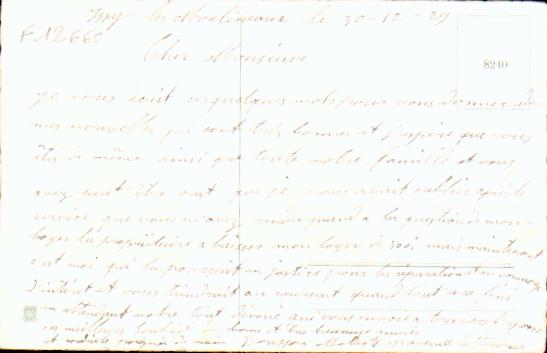 Issy les Moulineaux le 30-12-29
F12660
Cher Monsieur
8240
je vous écrit ces quelques mots pour vous donner de
mes nouvelles qui sont très bonnes et j'espère que vous
êtes de même ainsi que toute votre famille et vous
avez peut être cru que je vous avait oublier après le
service que vous m'avez rendu quand a la question de mon
loyer la propriétaire a baisser mon loyer de 300 mais maintenant
c'est moi qui la poursuit en justice pour les réparation et en
D'intérêt et vous tiendrait au courant quand tout sera fini
en attendant votre tout dévoué qui vous envoie a travers l'espace
ces meilleurs Souhait de bonne et heureuse année
et cordiale poignée de main